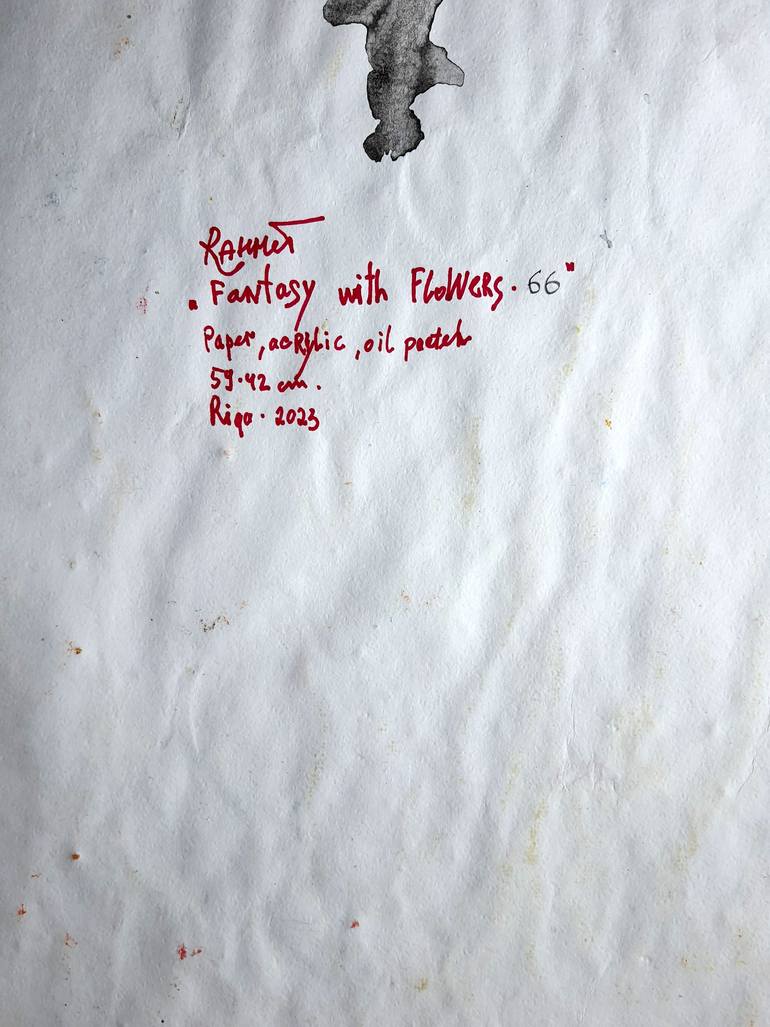 „Fantasy with Flowers. 66"
Paper, acrylic, oil pastel
59·42 cm.
Riga · 2023